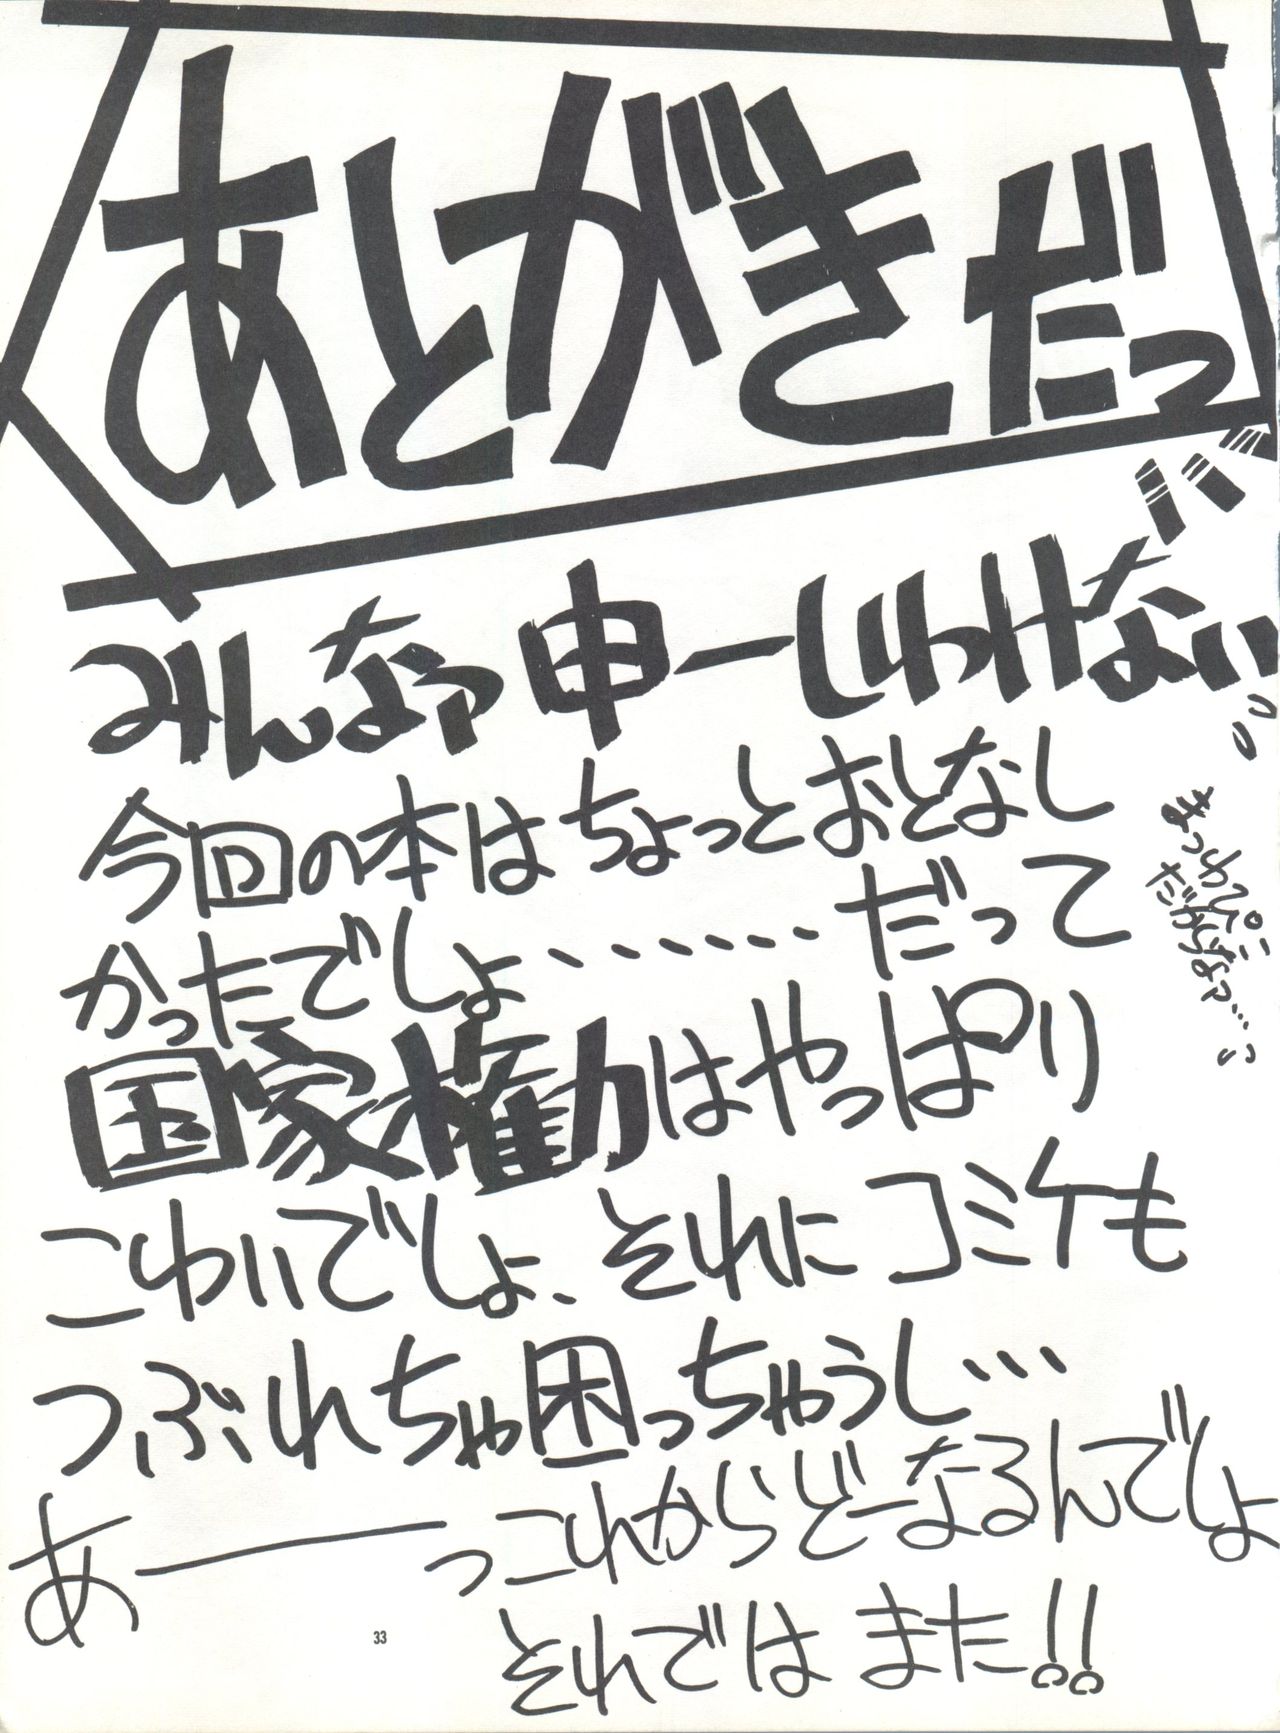 あとがきだっ
みんなァ申ーしわけない
今回の本はちょっとおとなし
かったでしょ・・・・・・・だって
国家権力はやっぱり
こわいでしょ、それにコミケも
つぶれちゃ困っちゃうし…
あーーーっこれからどーなるんでしょ
それでは また!!
33